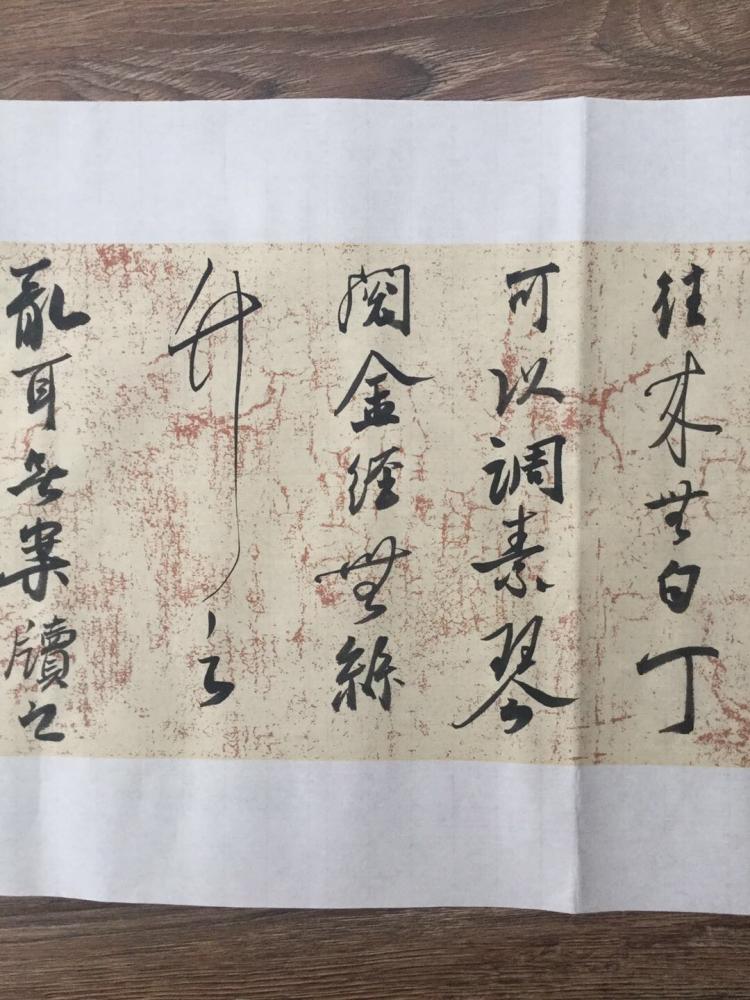 往來無白丁
可以調素琴
閱金經無絲
竹之
亂耳無案牘之